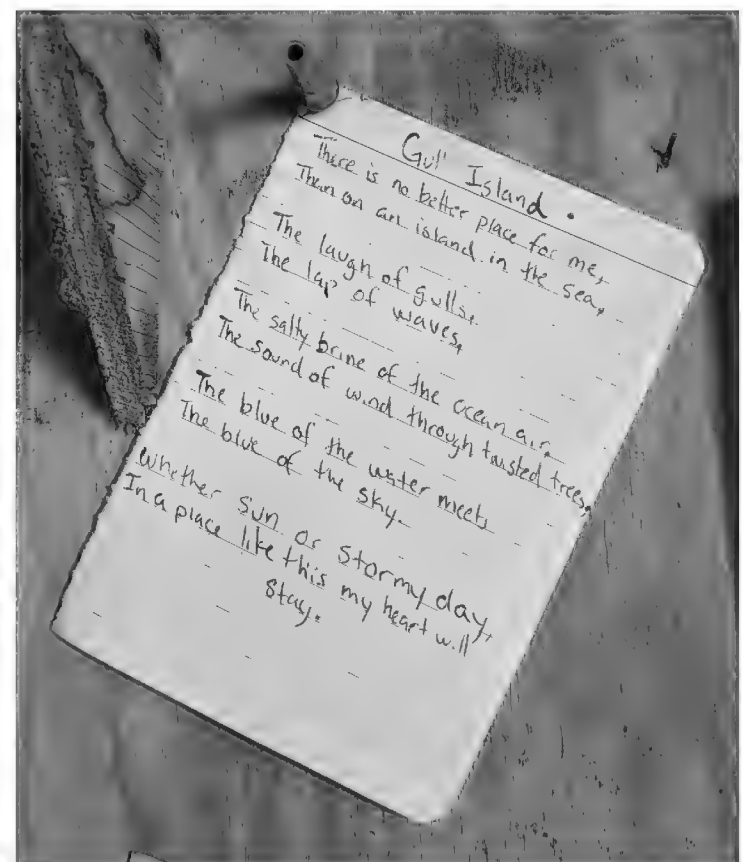 Gull Island.
There is no better place for me,
Than on an island in the sea,
The laugh of gulls,
The lap of waves,
The salty brine of the ocean air,
The sound of wind through twisted trees,
The blue of the water meets
The blue of the sky.
Whether sun or stormy day,
In a place like this my heart will
Stay.